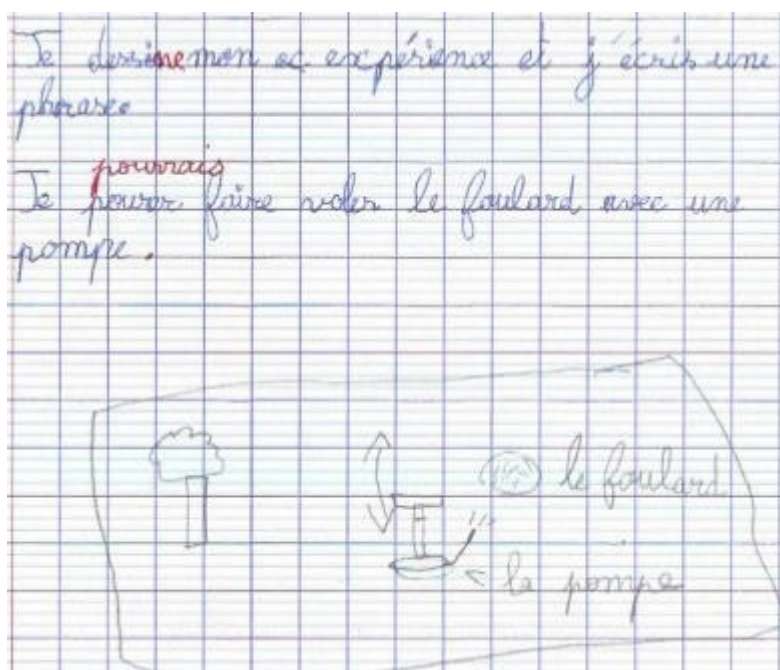 Je dessinemon ex expérience et j'écris une
phrase.
pourrais
Je pouvor faire voler le foulard avec une
pompe.
le foulard
la pompe